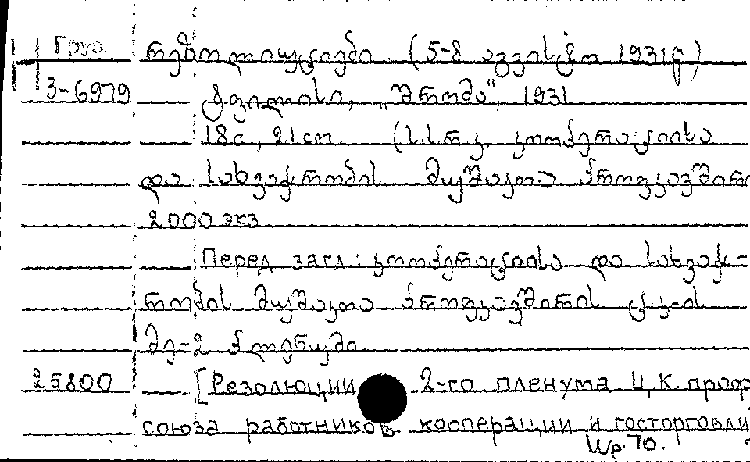 Груз. რეზოლიუციები (5-8 აგვისტო 1931წ)
3-6979 ტფილისი, „შრომა", 1931
18с, 21см. (ს.ს.რ.კ. კოოპერაციისა
და სახვაჭრობის მუშაკთა პროფკავშირი
2000 экз
Перед загл: კოოპერაციისა და სახვაჭ-
რობის მუშაკთა პროფკავშირის ც.კ-ის
მე-2 პლენუმი
25800 [Резолюции 2-го пленума Ц.К. проф
союза работников кооперации и госторговли
Шр 70.